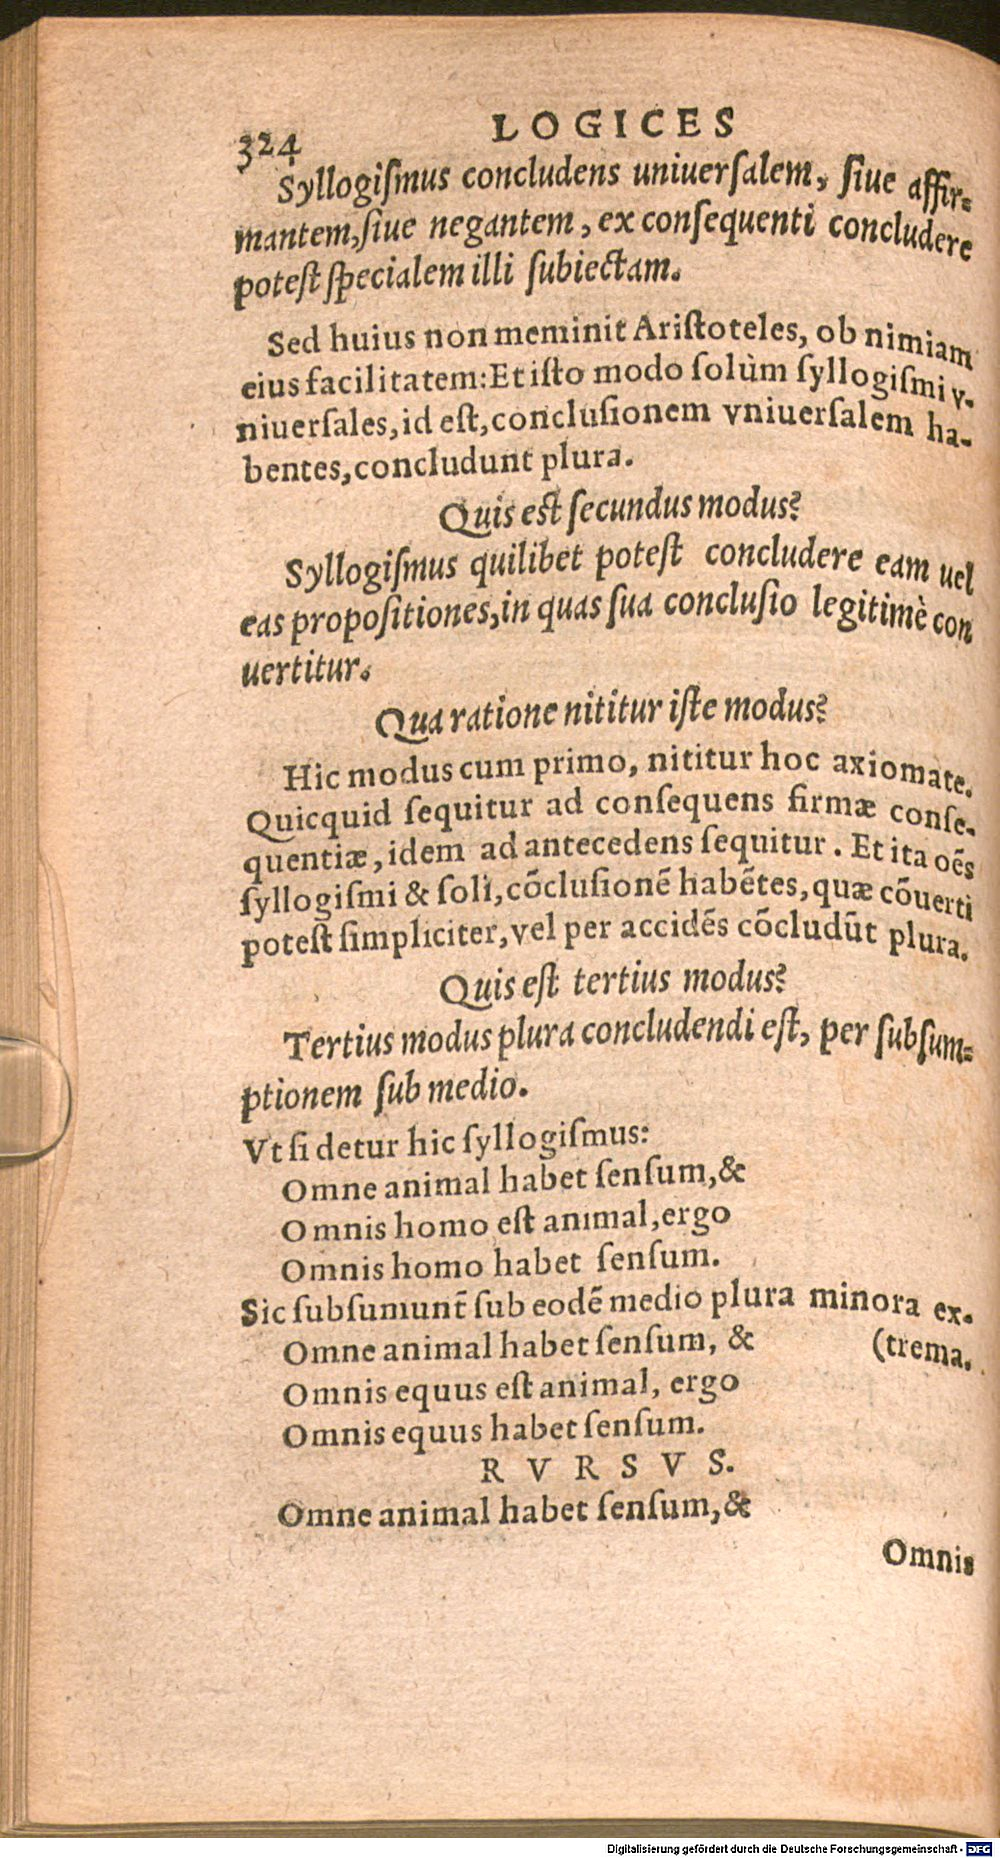 324 LOGICES
Syllogiſmus concludens uniuerſalem, ſiue affir-
mantem, ſiue negantem, ex conſequenti concludere
poteſt ſpecialem illi ſubiectam.
Sed huius non meminit Ariſtoteles, ob nimiam
eius facilitatem: Et iſto modo ſolùm ſyllogiſmi v-
niuerſales, id eſt, concluſionem vniuerſalem ha-
bentes, concludunt plura.
Quis eſt ſecundus modus?
Syllogiſmus quilibet poteſt concludere eam uel
eas propoſitiones, in quas ſua concluſio legitimè con
uertitur.
Qua ratione nititur iſte modus?
Hic modus cum primo, nititur hoc axiomate.
Quicquid ſequitur ad conſequens firmæ conſe-
quentiæ, idem ad antecedens ſequitur. Et ita oẽs
ſyllogiſmi & ſoli, cõcluſionẽ habẽtes, quæ cõuerti
poteſt ſimpliciter, vel per accidẽs cõcludũt plura.
Quis eſt tertius modus?
Tertius modus plura concludendi eſt, per ſubſum-
ptionem ſub medio.
Vt ſi detur hic ſyllogiſmus:
Omne animal habet ſenſum, &
Omnis homo eſt animal, ergo
Omnis homo habet ſenſum.
Sic ſubſumunt̃ ſub eodẽ medio plura minora ex-
Omne animal habet ſenſum, & (trema.
Omnis equus eſt animal, ergo
Omnis equus habet ſenſum.
RVRSVS.
Omne animal habet ſenſum, &
Omnis
Digitalisierung gefördert durch die Deutsche Forschungsgemeinschaft - DFG